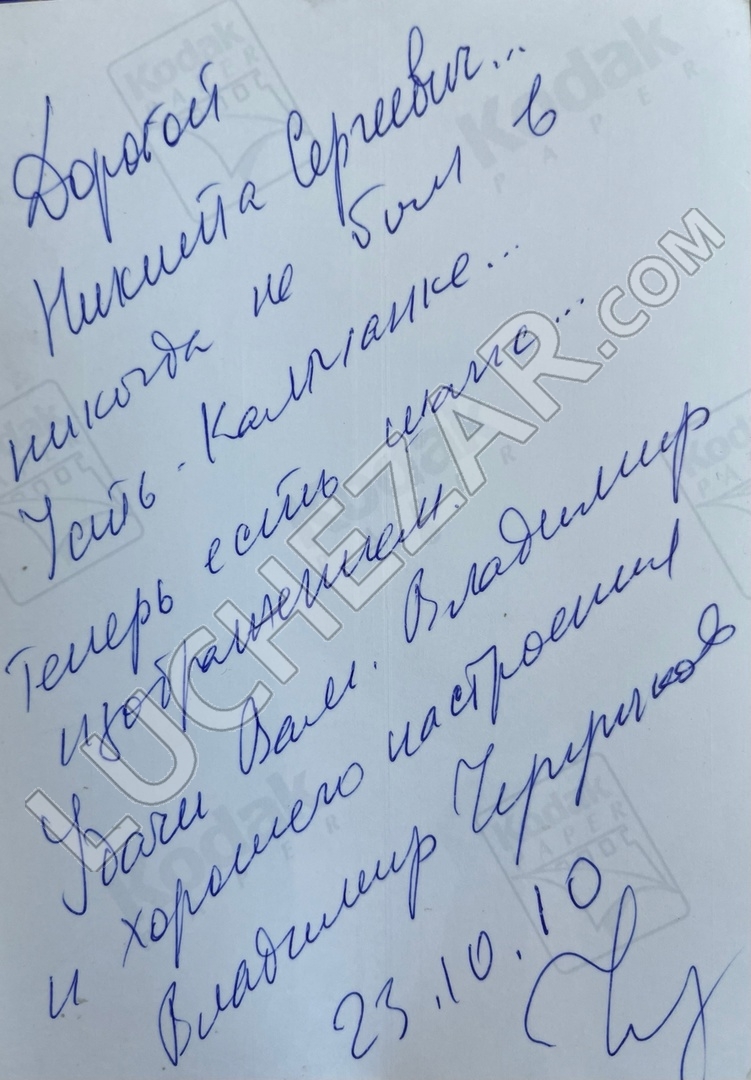 Дорогой
Никита Сергеевич...
никогда не был в
Усть-Калманке...
Теперь есть
изображением.
Удачи Вам. Владимир
и хорошего настроения
Владимир
23.10.10
LUCHEZAR.COM
Kodak
PAPER
Kodak
PAPER
Kodak
Kodak
Kodak
PAPER
Kodak
PAPER